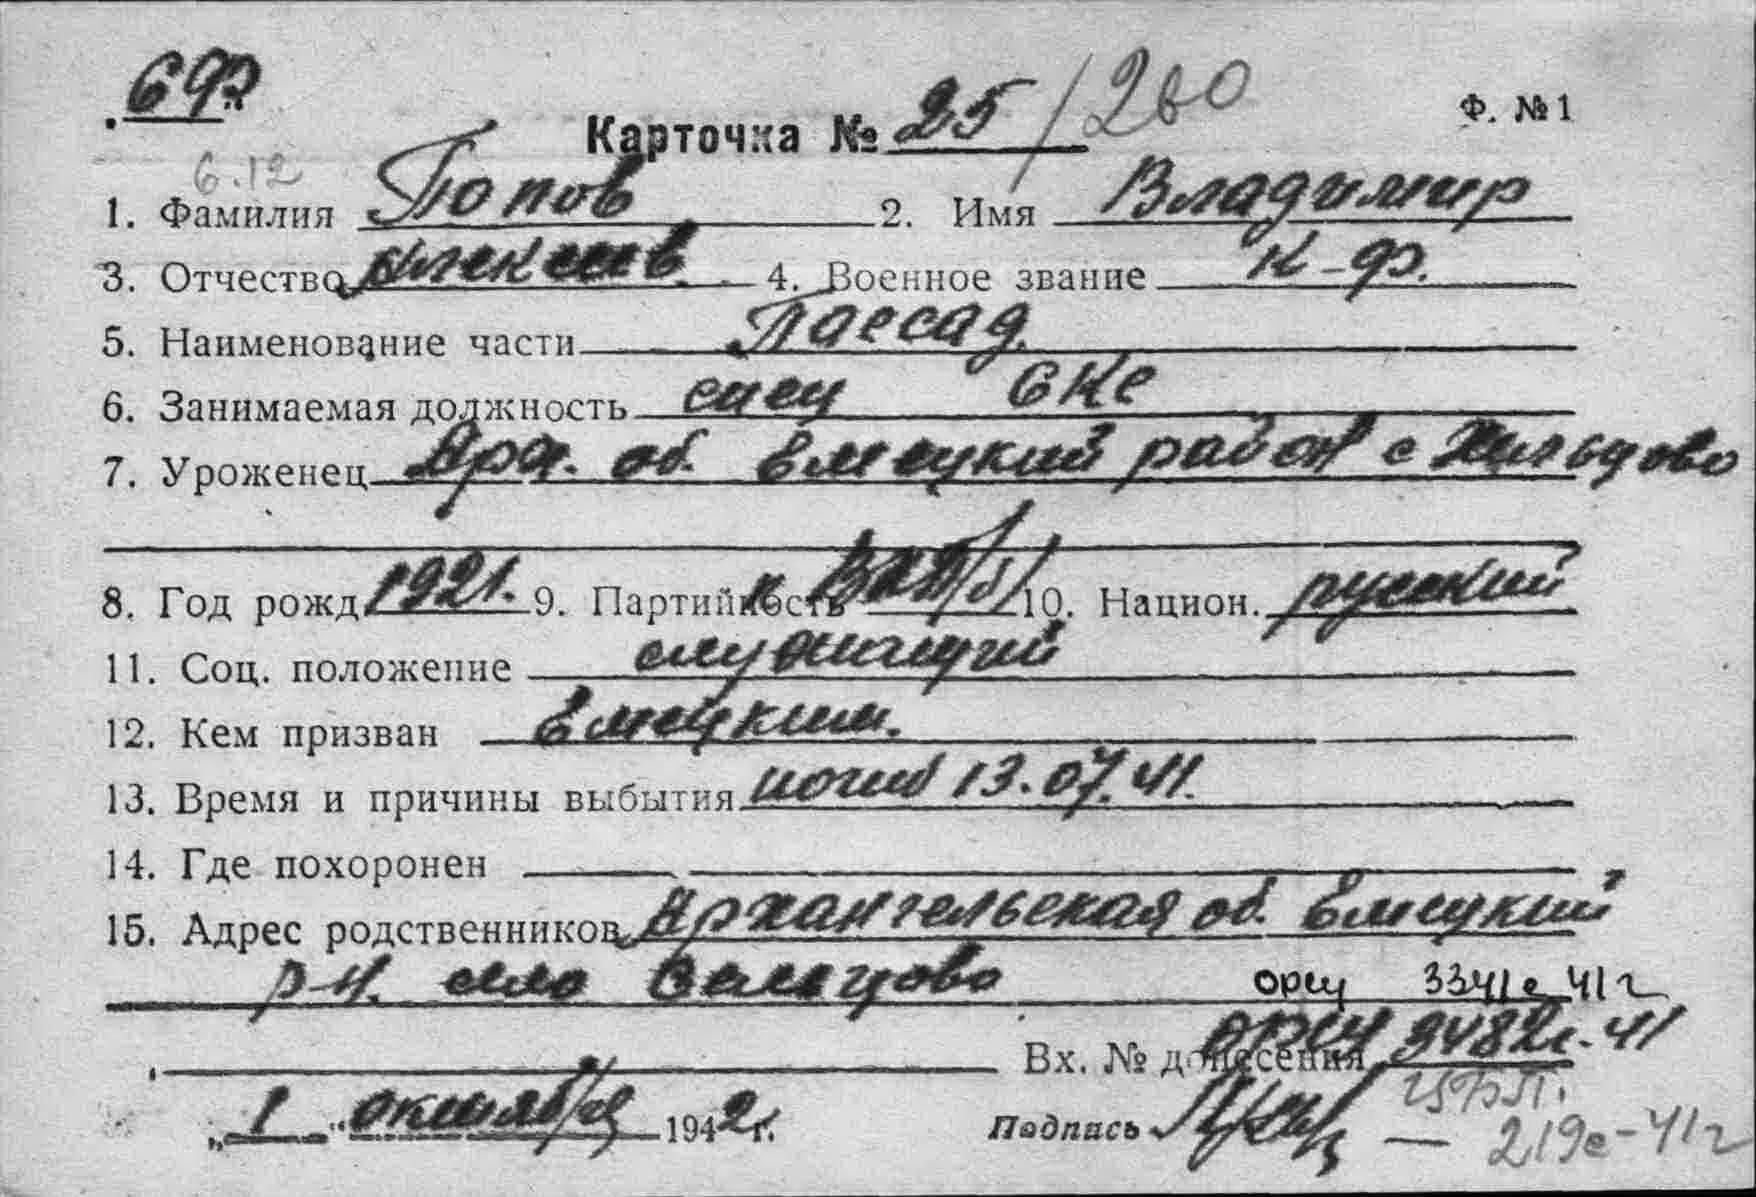 6 ЧФ
Карточка № 25/260
Ф. №1
6.12
1. Фамилия Попов 2. Имя Владимир
3. Отчество Алексеев. 4. Военное звание К-Ф.
5. Наименование части Пассад.
6. Занимаемая должность спец СКС
7. Уроженец Арх. об. Емецкий район с
8. Год рожд. 1921. 9. Партийность к ВКП/б/ 10. Национ. русский
11. Соц. положение служащий
12. Кем призван Емецким.
13. Время и причины выбытия погиб 13.07.41.
14. Где похоронен
15. Адрес родственников Архангельская об. Емецкий
р-н. село
орсу 3341с 41г
Вх. № донесения ОРСУ 9482с. 41
„1“ октября 1942г.
Подпись
— 219с-41г